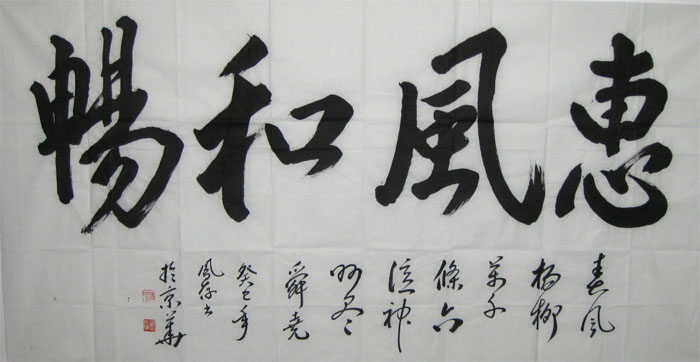 惠風和暢
春風
楊柳
萬千
條六
億神
州盡
舜堯
癸巳年
風存书
於京華